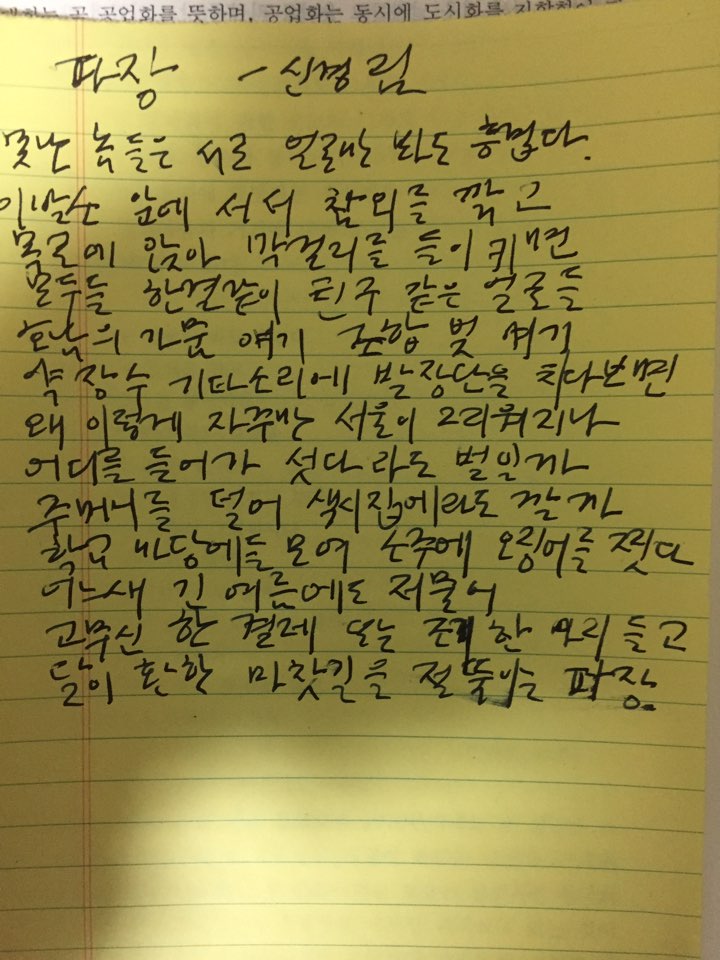 공업화를 뜻하며, 공업화는 동시에 도시화를
파장 - 신경림
못난 놈들은 서로 얼굴만 봐도 흥겹다.
이발소 앞에 서서 참외를 깎고
목로에 앉아 막걸리를 들이키면
모두들 한결같이 친구 같은 얼굴들
호남의 가뭄 얘기 조합 빚 얘기
약장수 기타소리에 발장단을 치다보면
왜 이렇게 자꾸만 서울이 그리워지나
어디를 들어가 섯다라도 벌일까
주머니를 털어 색시집에라도 갈까
학교 마당에들 모여 소주에 오징어를 찢다
어느새 긴 여름에도 저물어
고무신 한 켤레 또는 조기 한 마리 들고
달이 환한 마찻길을 절뚝이는 파장.